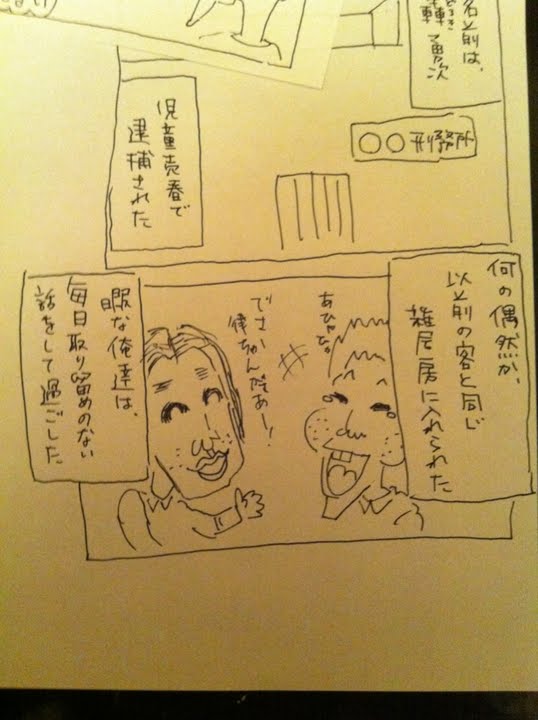 名前は、
轟 勇次
○○刑務所
児童売春で
逮捕された
何の偶然か、
以前の客と同じ
雑居房に入れられた
あひゃひゃ
でさぁ
律ちゃんだぁー!
暇な俺達は、
毎日取り留めのない
話をして過ごした